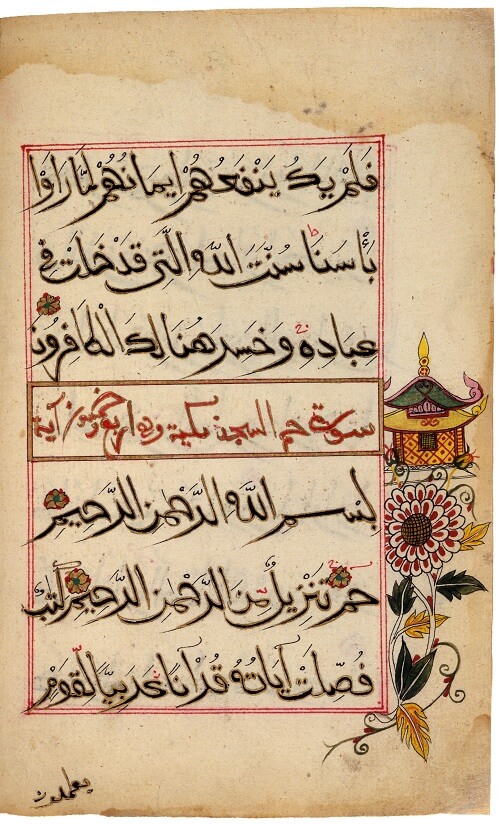 فَلَمْ يَكُ يَنْفَعُهُمْ إِيمَانُهُمْ لَمَّا رَأَوْا
بَأْسَنَا سُنَّتَ اللَّهِ الَّتِي قَدْ خَلَتْ فِي
عِبَادِهِ وَخَسِرَ هُنَالِكَ الْكَافِرُونَ
سورة حم السجدة مكية وهي اربع وخمسون آية
بِسْمِ اللَّهِ الرَّحْمٰنِ الرَّحِيمِ
حم تَنْزِيلٌ مِنَ الرَّحْمٰنِ الرَّحِيمِ كِتَابٌ
فُصِّلَتْ آيَاتُهُ قُرْآنًا عَرَبِيًّا لِقَوْمٍ
يعلمون